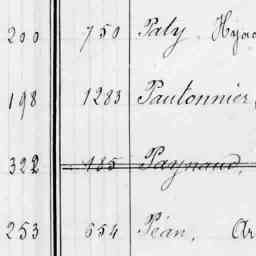 200 750 Paty Hyac
198 1283 Pautonnier,
322 185 Paynaud,
253 654 Péan, Ar